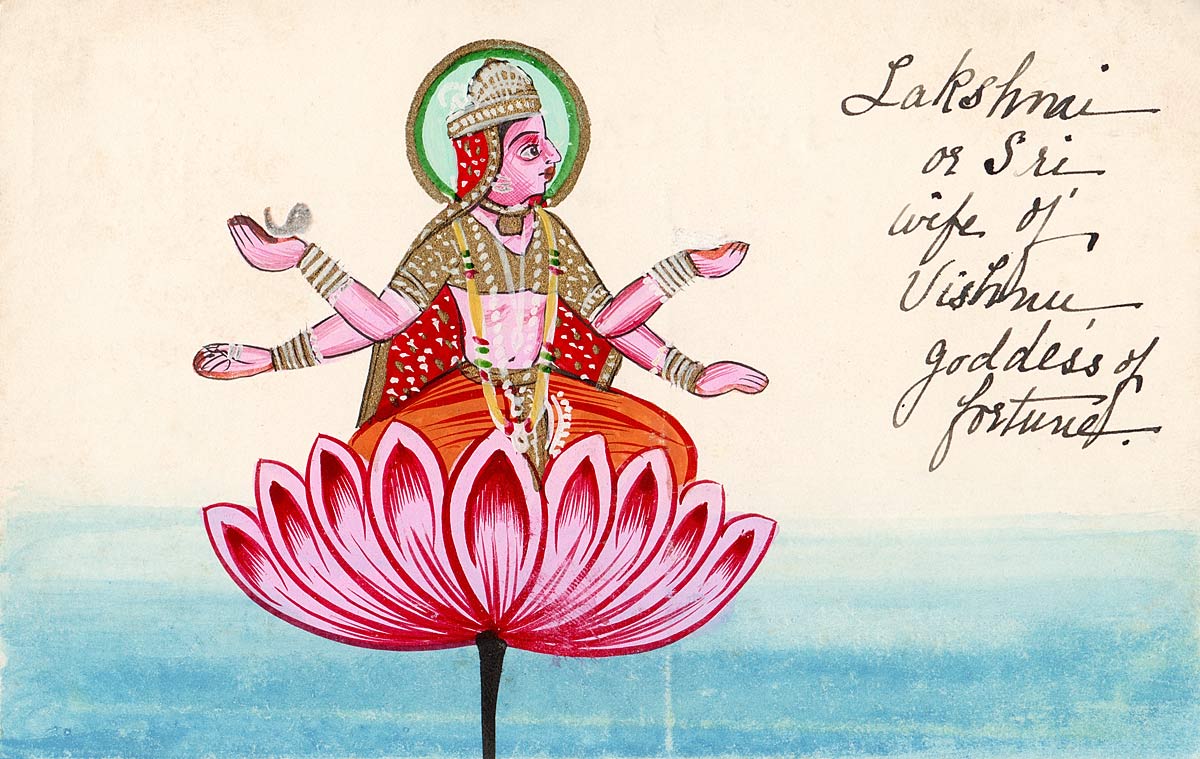 Lakshmi
or Sri
wife of
Vishnu
goddess of
fortune.